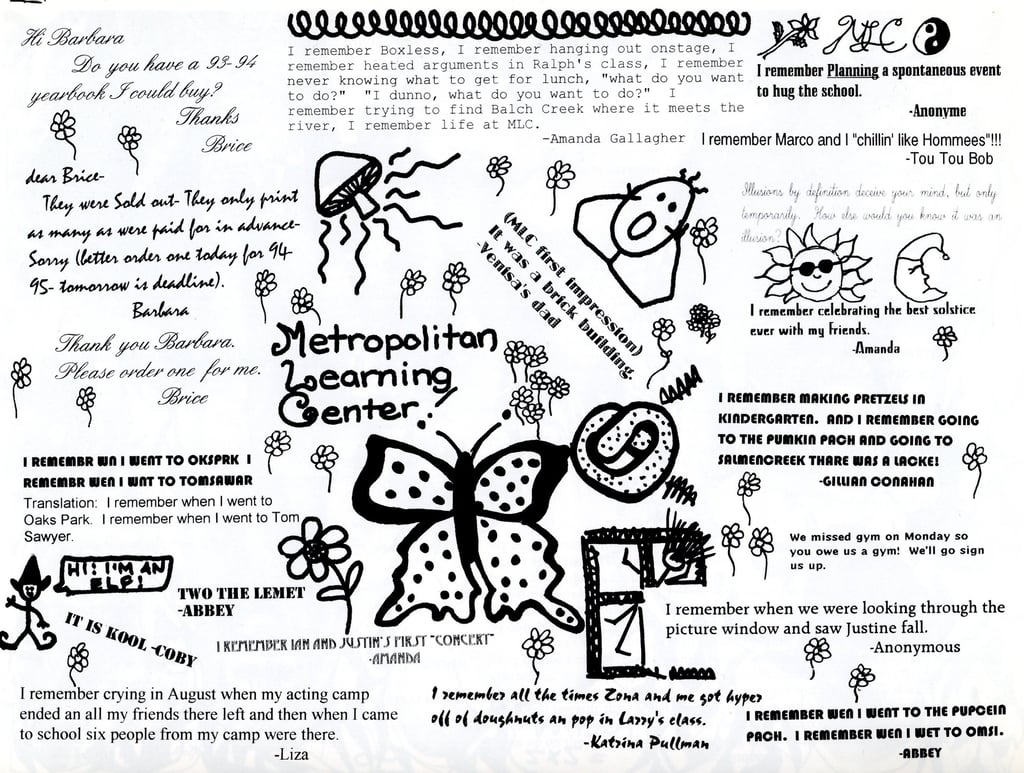 Hi Barbara
Do you have a 93-94
yearbook I could buy?
Thanks
Brice
dear Brice-
They were Sold out- They only print
as many as were paid for in advance-
Sorry (better order one today for 94-
95- tomorrow is deadline).
Barbara
Thank you Barbara.
Please order one for me.
Brice
I remember Boxless, I remember hanging out onstage, I
remember heated arguments in Ralph's class, I remember
never knowing what to get for lunch, "what do you want
to do?" "I dunno, what do you want to do?" I
remember trying to find Balch Creek where it meets the
river, I remember life at MLC.
-Amanda Gallagher
MLC
I remember Planning a spontaneous event
to hug the school.
-Anonyme
I remember Marco and I "chillin' like Hommees"!!!
-Tou Tou Bob
Illusions by definition deceive your mind, but only
temporarily. How else would you know it was an
illusion?
I remember celebrating the best solstice
ever with my friends.
-Amanda
(MLC first impression)
It was a brick building.
-Venisa's dad
Metropolitan
Learning
Center!
I REMEMBER MAKING PRETZELS IN
KINDERGARTEN. AND I REMEMBER GOING
TO THE PUMKIN PACH AND GOING TO
SALMENCREEK THARE WAS A LACKE!
-GILLIAN CONAHAN
I REMEMBR WN I WENT TO OKSPRK I
REMEMBR WEN I WNT TO TOMSAWAR
Translation: I remember when I went to
Oaks Park. I remember when I went to Tom
Sawyer.
HI! I'M AN
ELF!
TWO THE LEMET
-ABBEY
IT IS KOOL -COBY
I REMEMBER IAN AND JUSTIN'S FIRST "CONCERT"
-AMANDA
We missed gym on Monday so
you owe us a gym! We'll go sign
us up.
I remember when we were looking through the
picture window and saw Justine fall.
-Anonymous
I remember crying in August when my acting camp
ended an all my friends there left and then when I came
to school six people from my camp were there.
-Liza
I remember all the times Zona and me got hyper
off of doughnuts an pop in Larry's class.
-Katrina Pullman
I REMEMBER WEN I WENT TO THE PUPCEIN
PACH. I REMEMBER WEN I WET TO OMSI.
-ABBEY